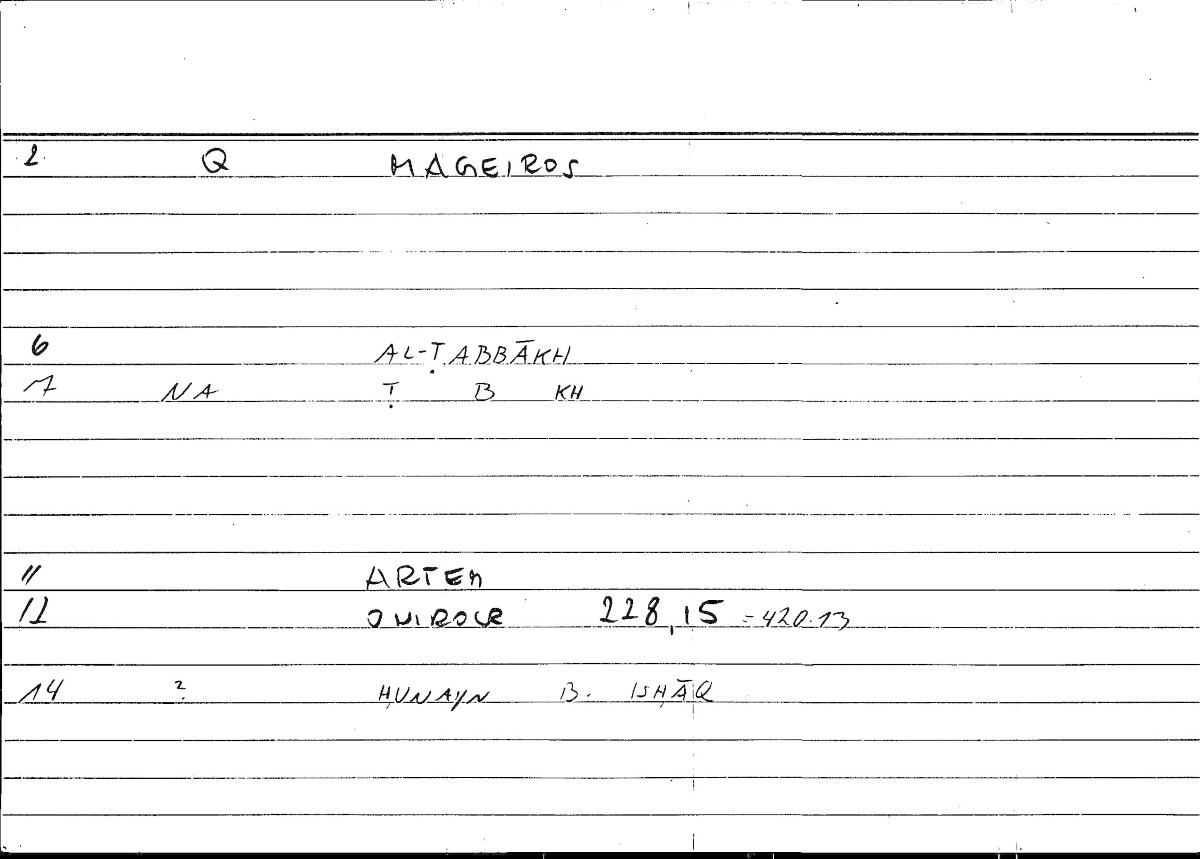 2 Q MAGEIROS
6 AL-ṬABBĀKH
7 NA Ṭ B KH
11 ARTEM
12 ONIROCR 228,15 = 420.13
14 ? ḤUNAYN B. ISḤĀQ